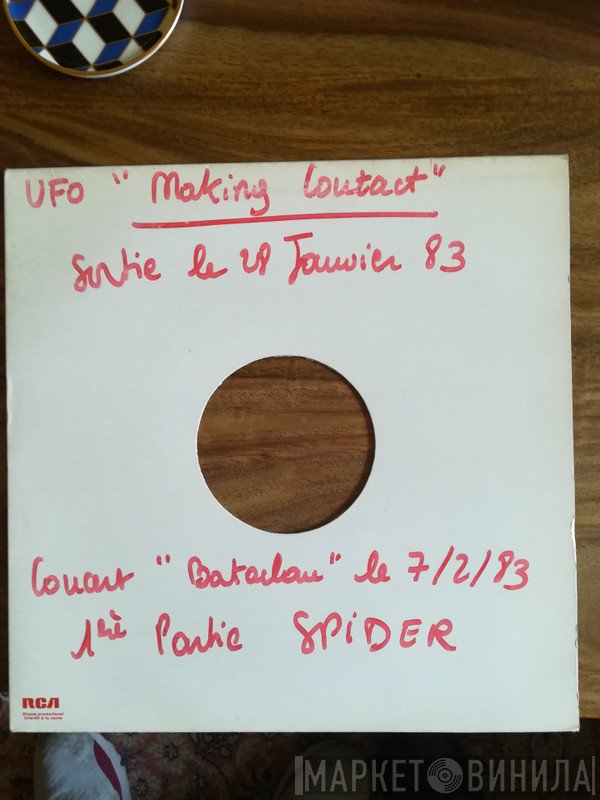 UFO " Making Contact"
Sortie le 28 Janvier 83
Concert "Bataclan" le 7/2/83
1ère Partie SPiDER
RCA
Disque promotionnel
interdit à la vente
МАРКЕТ ВИНИЛА